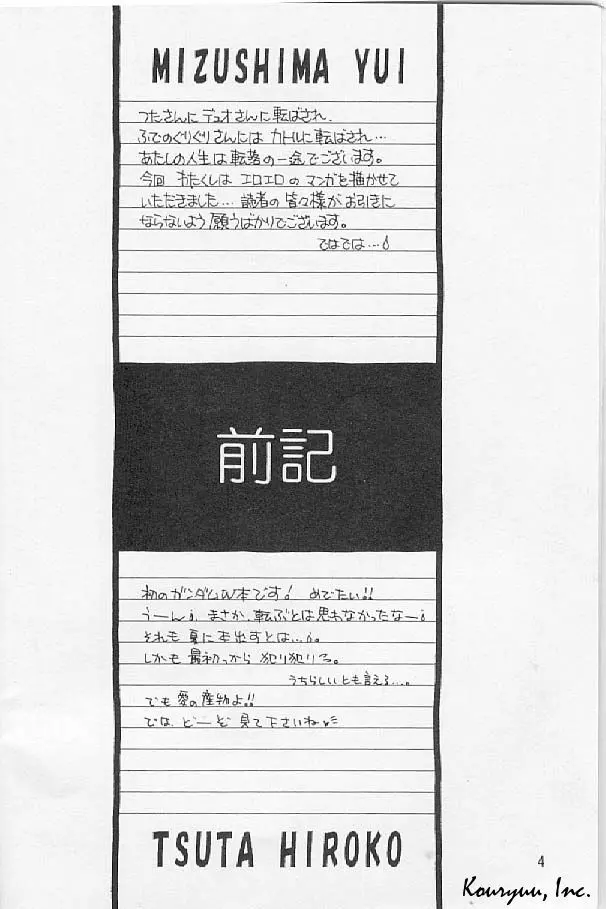 MIZUSHIMA YUI
つたさんに デュオさんに転ばされ、
ふでのぐりぐりさんには カトルに転ばされ…
あたしの人生は転落の一途でございます。
今回 わたくしは エロエロの マンガを描かせて
いただきました… 読者の 皆々様が お引きに
ならないよう、願うばかりでございます。
ではでは…
前記
初のガンダムW本です! めでたい!!
うーん、まさか、転ぶとは思わなかったなー
それも 夏に本出すとは…。
しかも 最初っから 犯り犯りろ。
うちらしいとも言える…。
でも 愛の産物よ!!
では、どーぞ 見て下さいね
TSUTA HIROKO
4
Kouryuu, Inc.